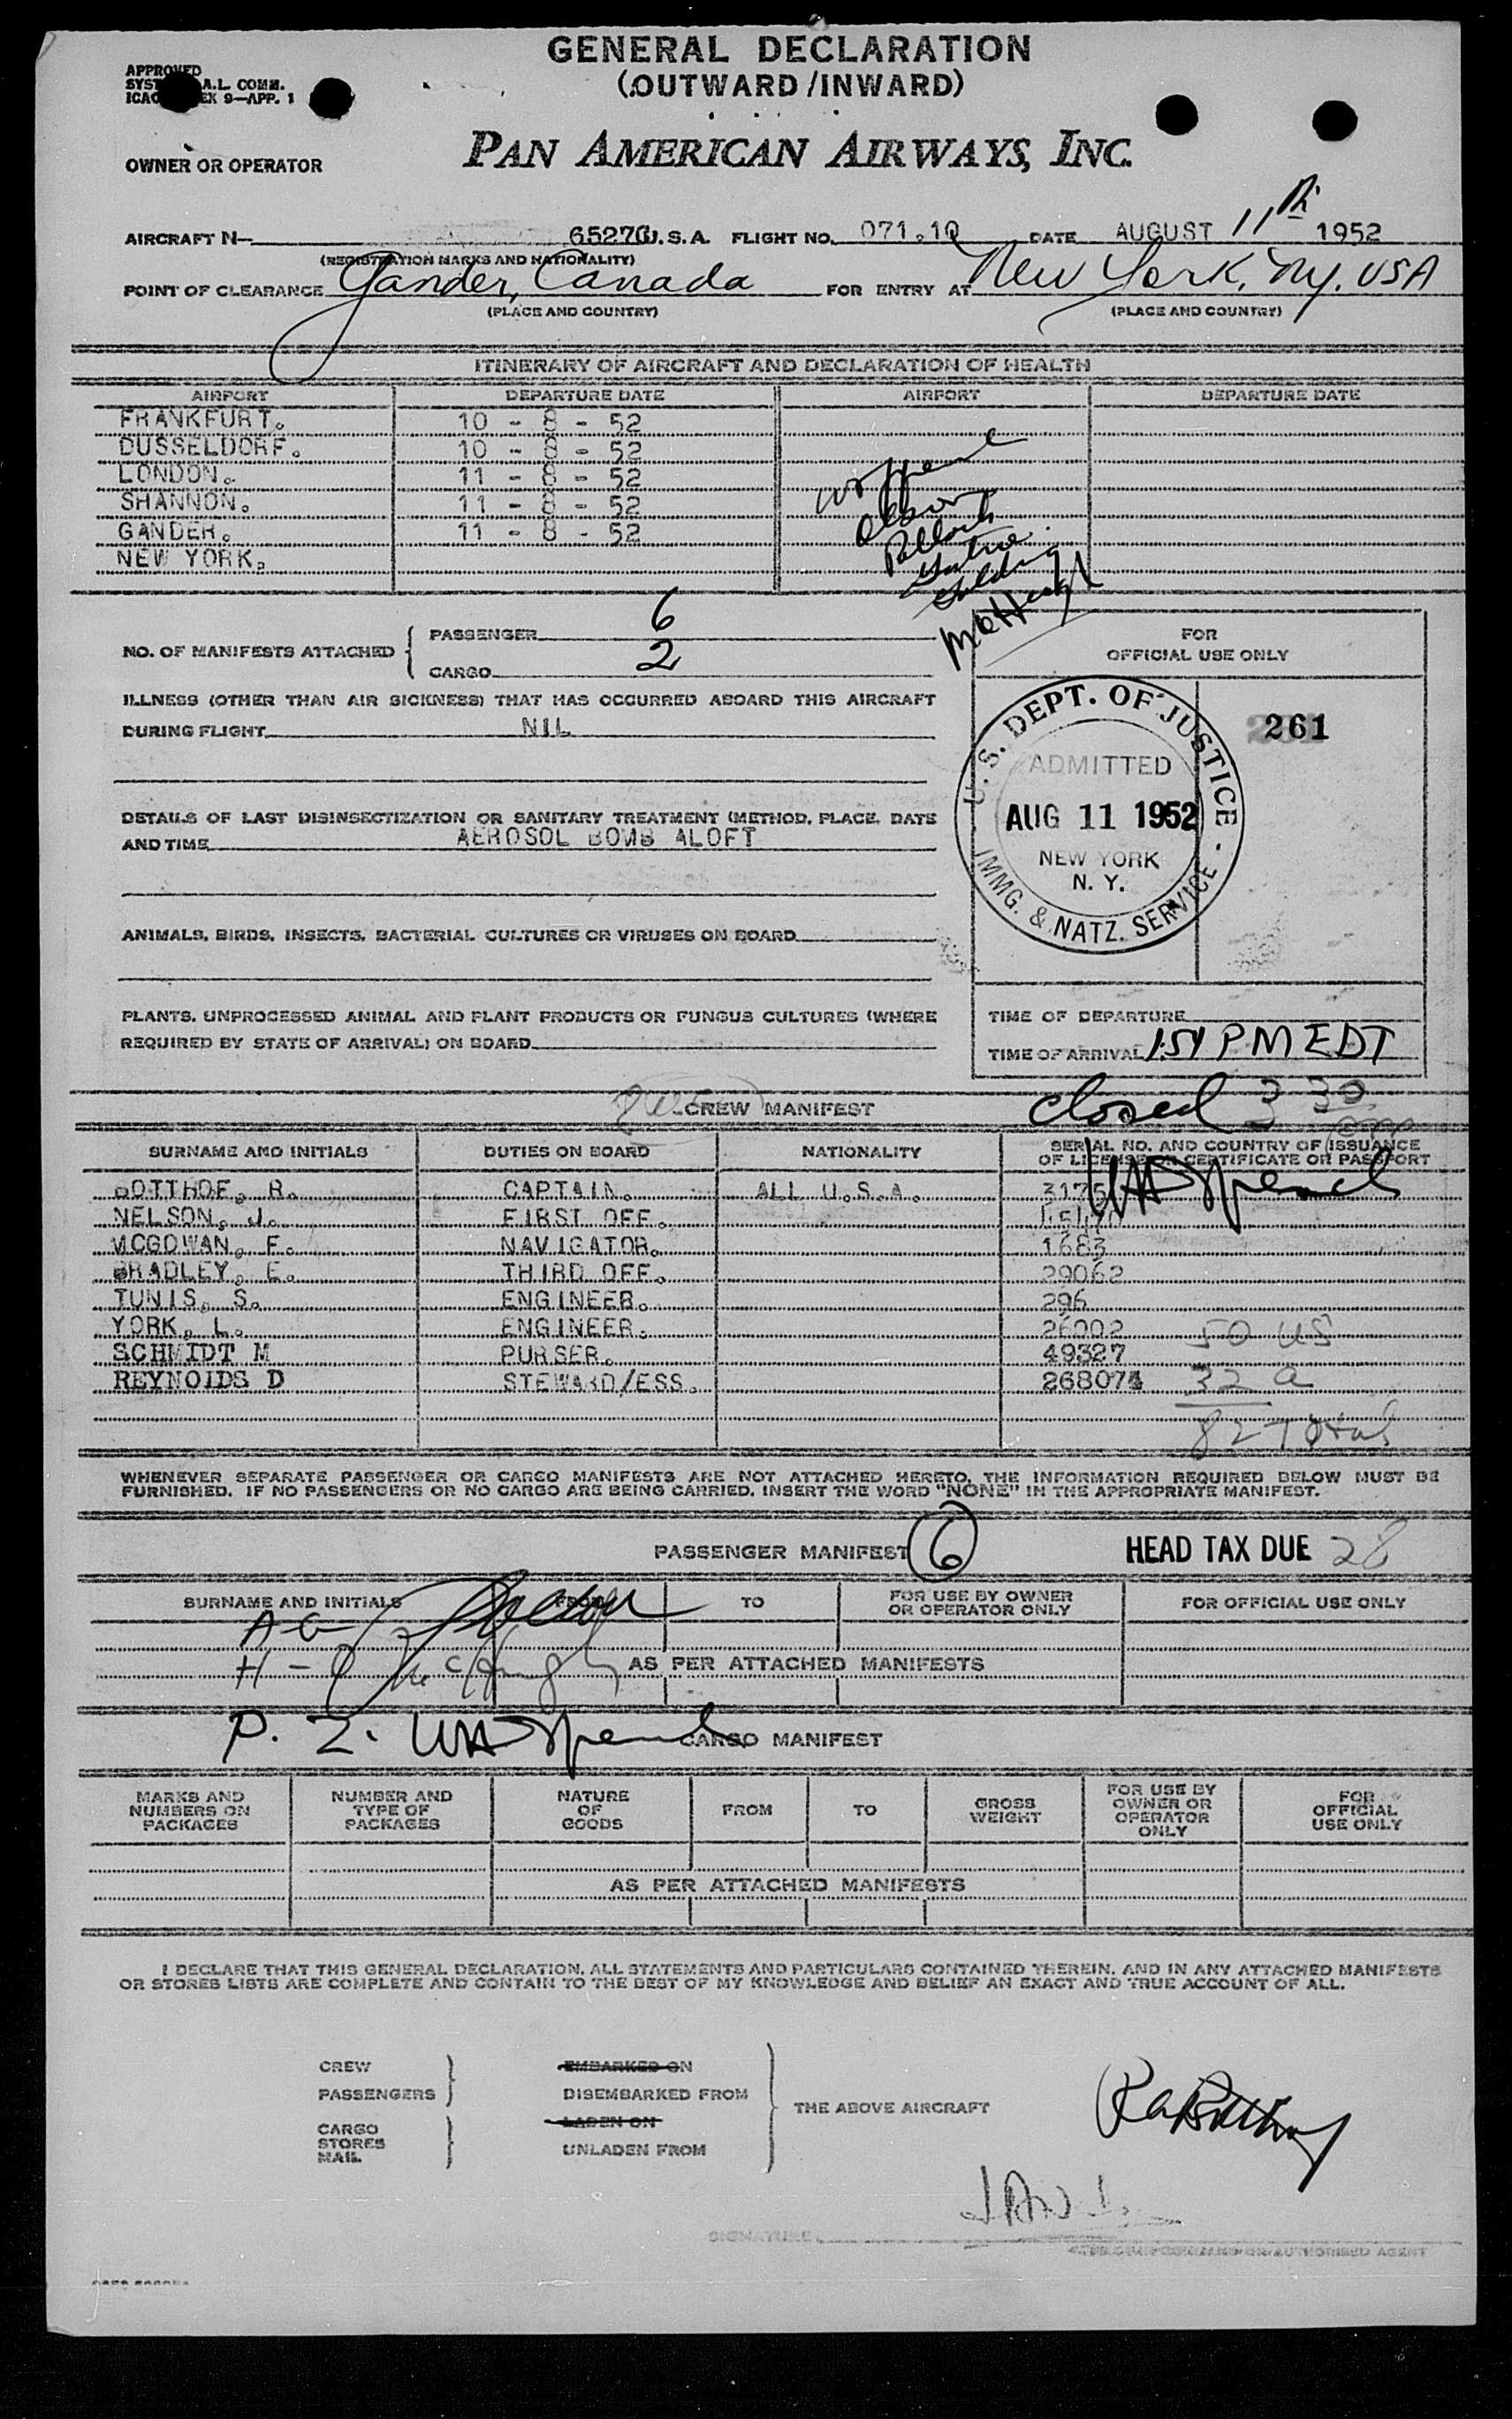 GENERAL DECLARATION
(OUTWARD/INWARD)
APPROVED
A.L. COMM.
9—APP. 1
OWNER OR OPERATOR
PAN AMERICAN AIRWAYS, INC.
AIRCRAFT N— U.S.A. FLIGHT NO. 071.10 DATE AUGUST 11th 1952
(REGISTRATION MARKS AND NATIONALITY)
POINT OF CLEARANCE Gander, Canada FOR ENTRY AT New York, NY. USA
(PLACE AND COUNTRY) (PLACE AND COUNTRY)
ITINERARY OF AIRCRAFT AND DECLARATION OF HEALTH
AIRPORT DEPARTURE DATE AIRPORT DEPARTURE DATE
FRANKFURT. 10 - 8 - 52
DUSSELDORF. 10 - 8 - 52
LONDON. 11 - 8 - 52
SHANNON. 11 - 8 - 52
GANDER. 11 - 8 - 52
NEW YORK.
NO. OF MANIFESTS ATTACHED { PASSENGER 6
CARGO 2
FOR
OFFICIAL USE ONLY
261
U.S. DEPT. OF JUSTICE - IMMG. & NATZ. SERVICE -
ADMITTED
AUG 11 1952
NEW YORK
N. Y.
ILLNESS (OTHER THAN AIR SICKNESS) THAT HAS OCCURRED ABOARD THIS AIRCRAFT
DURING FLIGHT NIL
DETAILS OF LAST DISINSECTIZATION OR SANITARY TREATMENT (METHOD, PLACE, DATE
AND TIME AEROSOL BOMB ALOFT
ANIMALS, BIRDS, INSECTS, BACTERIAL CULTURES OR VIRUSES ON BOARD
PLANTS, UNPROCESSED ANIMAL AND PLANT PRODUCTS OR FUNGUS CULTURES (WHERE
REQUIRED BY STATE OF ARRIVAL) ON BOARD
TIME OF DEPARTURE
TIME OF ARRIVAL 1:54 PM EDT
closed 3 30
CREW MANIFEST
SURNAME AND INITIALS DUTIES ON BOARD NATIONALITY SERIAL NO. AND COUNTRY OF ISSUANCE
OF LICENSE OR CERTIFICATE OR PASSPORT
BOTTHOF, R. CAPTAIN. ALL U.S.A.
NELSON, J. FIRST OFF.
MCGOWAN, F. NAVIGATOR. 1683
BRADLEY, E. THIRD OFF. 29062
TUNIS, S. ENGINEER. 296
YORK, L. ENGINEER. 26002 50 US
SCHMIDT M PURSER. 49327
REYNOLDS D STEWARD/ESS. 268074 32 a
82 Total
WHENEVER SEPARATE PASSENGER OR CARGO MANIFESTS ARE NOT ATTACHED HERETO, THE INFORMATION REQUIRED BELOW MUST BE
FURNISHED. IF NO PASSENGERS OR NO CARGO ARE BEING CARRIED, INSERT THE WORD "NONE" IN THE APPROPRIATE MANIFEST.
PASSENGER MANIFEST 6 HEAD TAX DUE 28
SURNAME AND INITIALS FROM TO FOR USE BY OWNER
OR OPERATOR ONLY FOR OFFICIAL USE ONLY
A-G
H-O McHugh AS PER ATTACHED MANIFESTS
P. Z.
CARGO MANIFEST
MARKS AND
NUMBERS ON
PACKAGES
NUMBER AND
TYPE OF
PACKAGES
NATURE
OF
GOODS
FROM
TO
GROSS
WEIGHT
FOR USE BY
OWNER OR
OPERATOR
ONLY
FOR
OFFICIAL
USE ONLY
AS PER ATTACHED MANIFESTS
I DECLARE THAT THIS GENERAL DECLARATION, ALL STATEMENTS AND PARTICULARS CONTAINED THEREIN, AND IN ANY ATTACHED MANIFESTS
OR STORES LISTS ARE COMPLETE AND CONTAIN TO THE BEST OF MY KNOWLEDGE AND BELIEF AN EXACT AND TRUE ACCOUNT OF ALL.
CREW
PASSENGERS
CARGO
STORES
MAIL
EMBARKED ON
DISEMBARKED FROM
LADEN ON
UNLADEN FROM
THE ABOVE AIRCRAFT
SIGNATURE
AUTHORISED AGENT